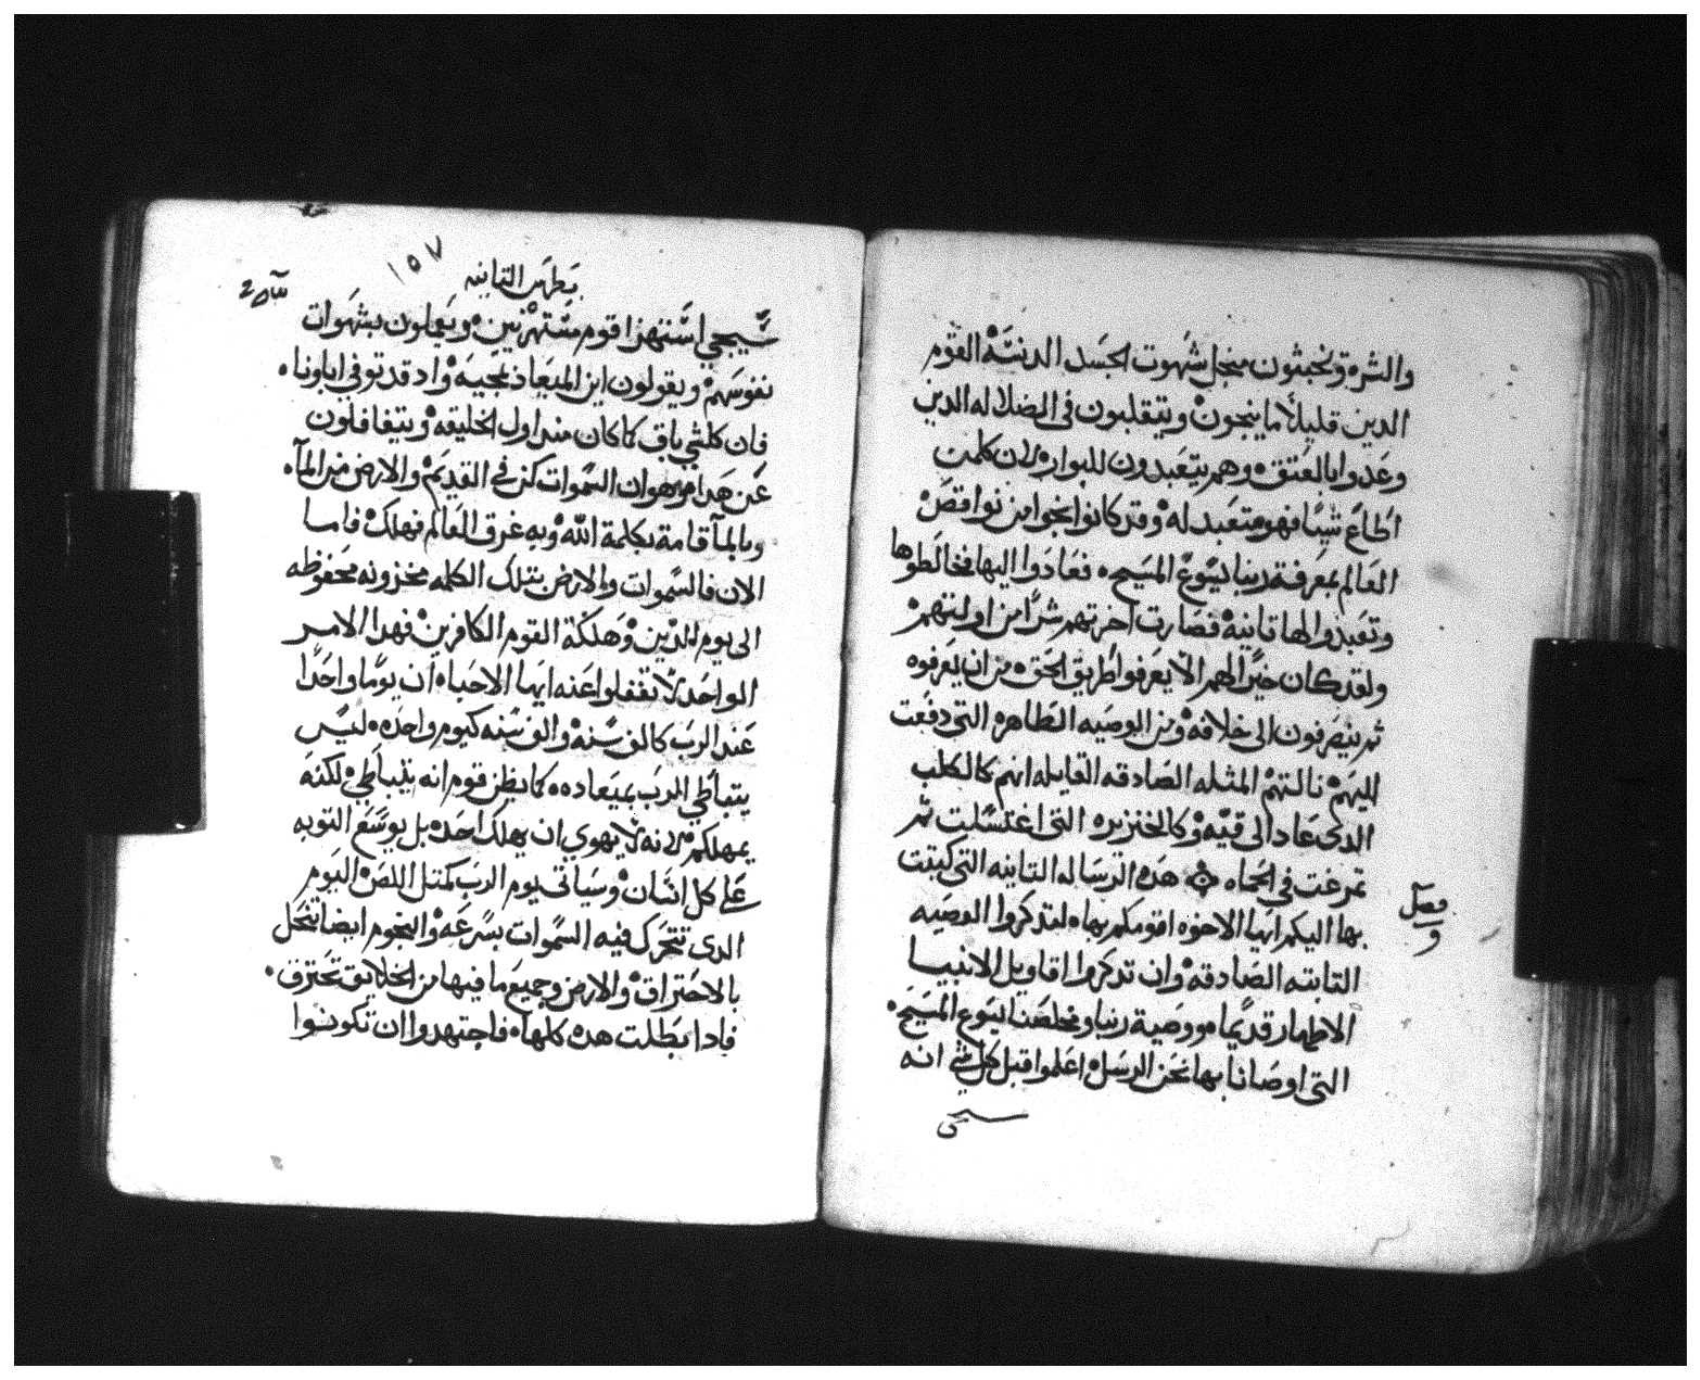 والشره ونخبثون منجل شهوت الجسد الدنسه القوم
الدين قليلًا ما ينجون ويتقلبون فى الضلاله الدين
وعدوا بالعتقه وهم يتعبدون للبواره لان كلمن
اطاع شيًا فهو متعبد له وقد كانوا نجوا من نواقص
العالم بمعرفة ربنا يسوع المسيح فعادوا اليها فخالطوها
وتعبدوا لها تانيه فصارت اخرتهم شرًا من اولتهم
ولقد كان خيرًا لهم الا يعرفوا طريق الحق من ان يعرفوه
تم ينصرفون الى خلافه ومن الوصيه الطاهره التى دفعت
اليهم نالتهم المتله الصادقه القايله انهم كالكلب
الدى عاد الى قيه وكالخنزيره التى اغتسلت تم
تمرغت فى الحماه هده الرساله التانيه التى كتبت
بها اليكم ايها الاخوه اقومكم بها لتدكروا الوصيه
التابته الصادقه وان تدكروا اقاويل الانبيا
الاطهار قديما ووصية ربنا ومخلصنا يسوع المسيح
التى اوصانا بها نحن الرسل اعلموا قبل كل شي انه
سيجى
فصل
و
بطرس التانيه
١٥٧
سيجي استهزا قوم مستهزيين ويعملون بشهوات
نفوسهم ويقولون اين الميعاد لمجيه واد قد توفي اباونا
فان كلشي باق كما كان مند اول الخليقه ويتغافلون
عن هدا وهو ان السموات كن في القديم والارض من المآ
وبالمآ قامة بكلمة الله وبه غرق العالم فهلك فاما
الان فالسموات والارض بتلك الكلمه مخزونه محفوظه
الى يوم الدين وهلكة القوم الكافرين فهدا الامر
الواحد لا تغفلوا عنه ايها الاحباه ان يومًا واحدًا
عند الرب كالف سنه والف سنه كيوم واحد ليس
يتباطي الرب بميعاده كما يظن قوم انه يتباطي لكنه
يمهلكم لانه لا يهوي ان يهلك احد بل يوسع التوبه
على كل انسان وسياتى يوم الرب كمتل اللص اليوم
الدى تتحرك فيه السموات بسرعه والنجوم ايضا تنحل
بالاحتراق والارض وجميع ما فيها من الخلايق تحترق
فادا بطلت هده كلها فاجتهدوا ان تكونوا